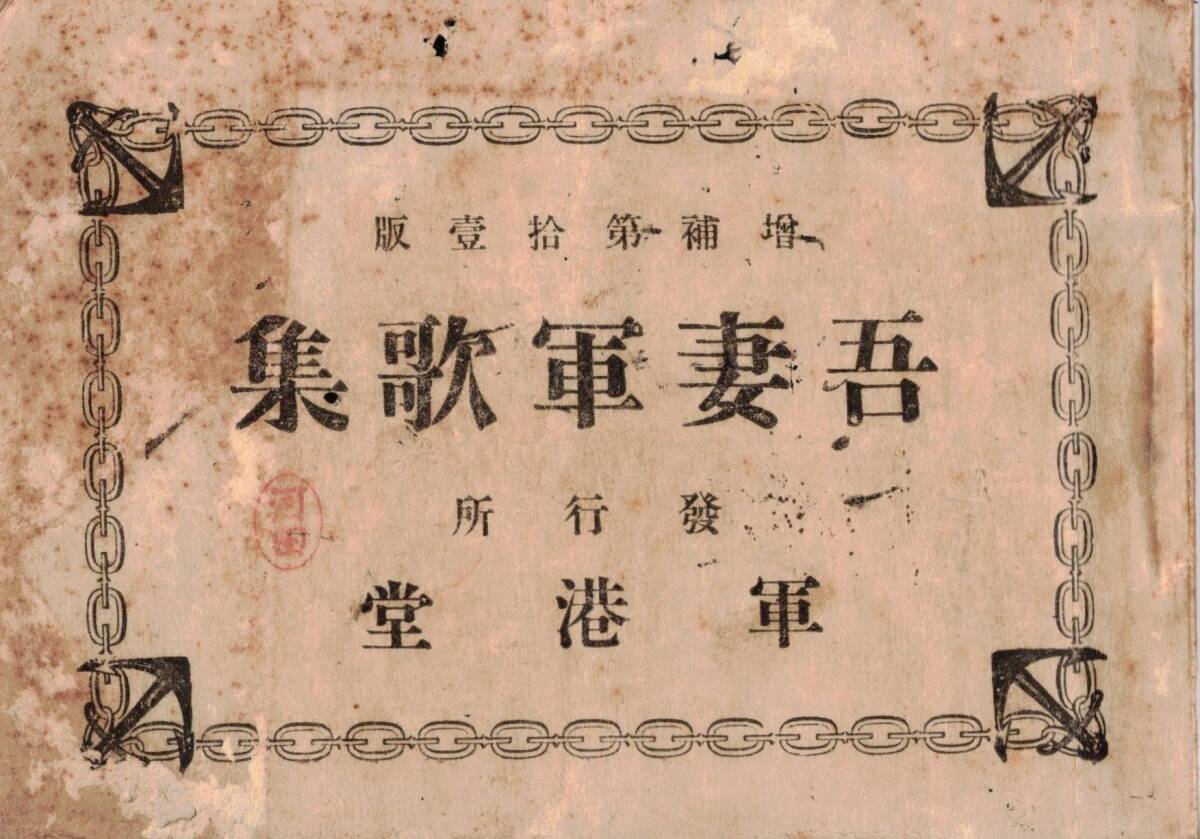 増補第拾壹版
吾妻軍歌集
發行所
軍港堂
河田